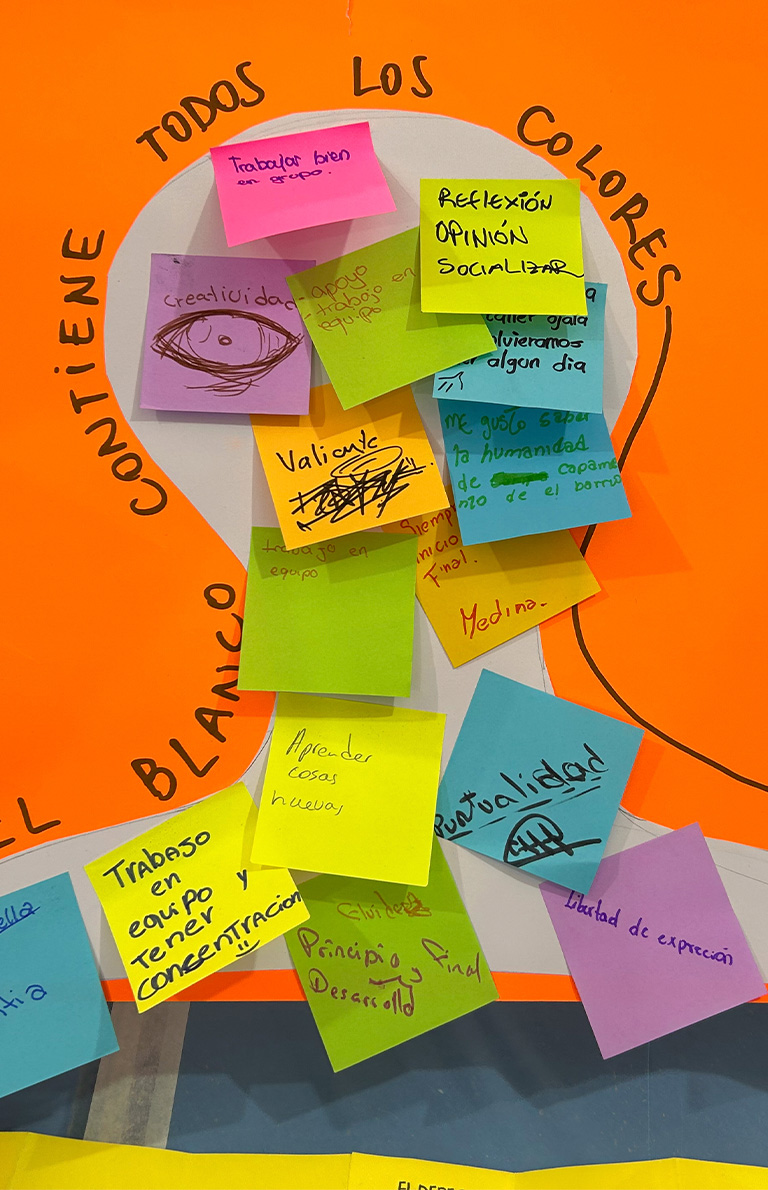 EL BLANCO CONTIENE TODOS LOS COLORES
Trabajar bien
en grupo.
REFLEXIÓN
OPINIÓN
SOCIALIZAR
creatividad
- apoyo
- trabajo en
equipo
a
ojala
lvieramos
algun dia
Valiente
me gusto saber
la humanidad
de capami
nto de el barrio
Siempr
inicio
Final.
Medina.
trabajo en
equipo
Aprender
cosas
nuevas
Puntualidad
Trabajo
en
equipo y
tener
consentracion
Principio y Final
Desarrollo
Libertad de expreción
ella
tia